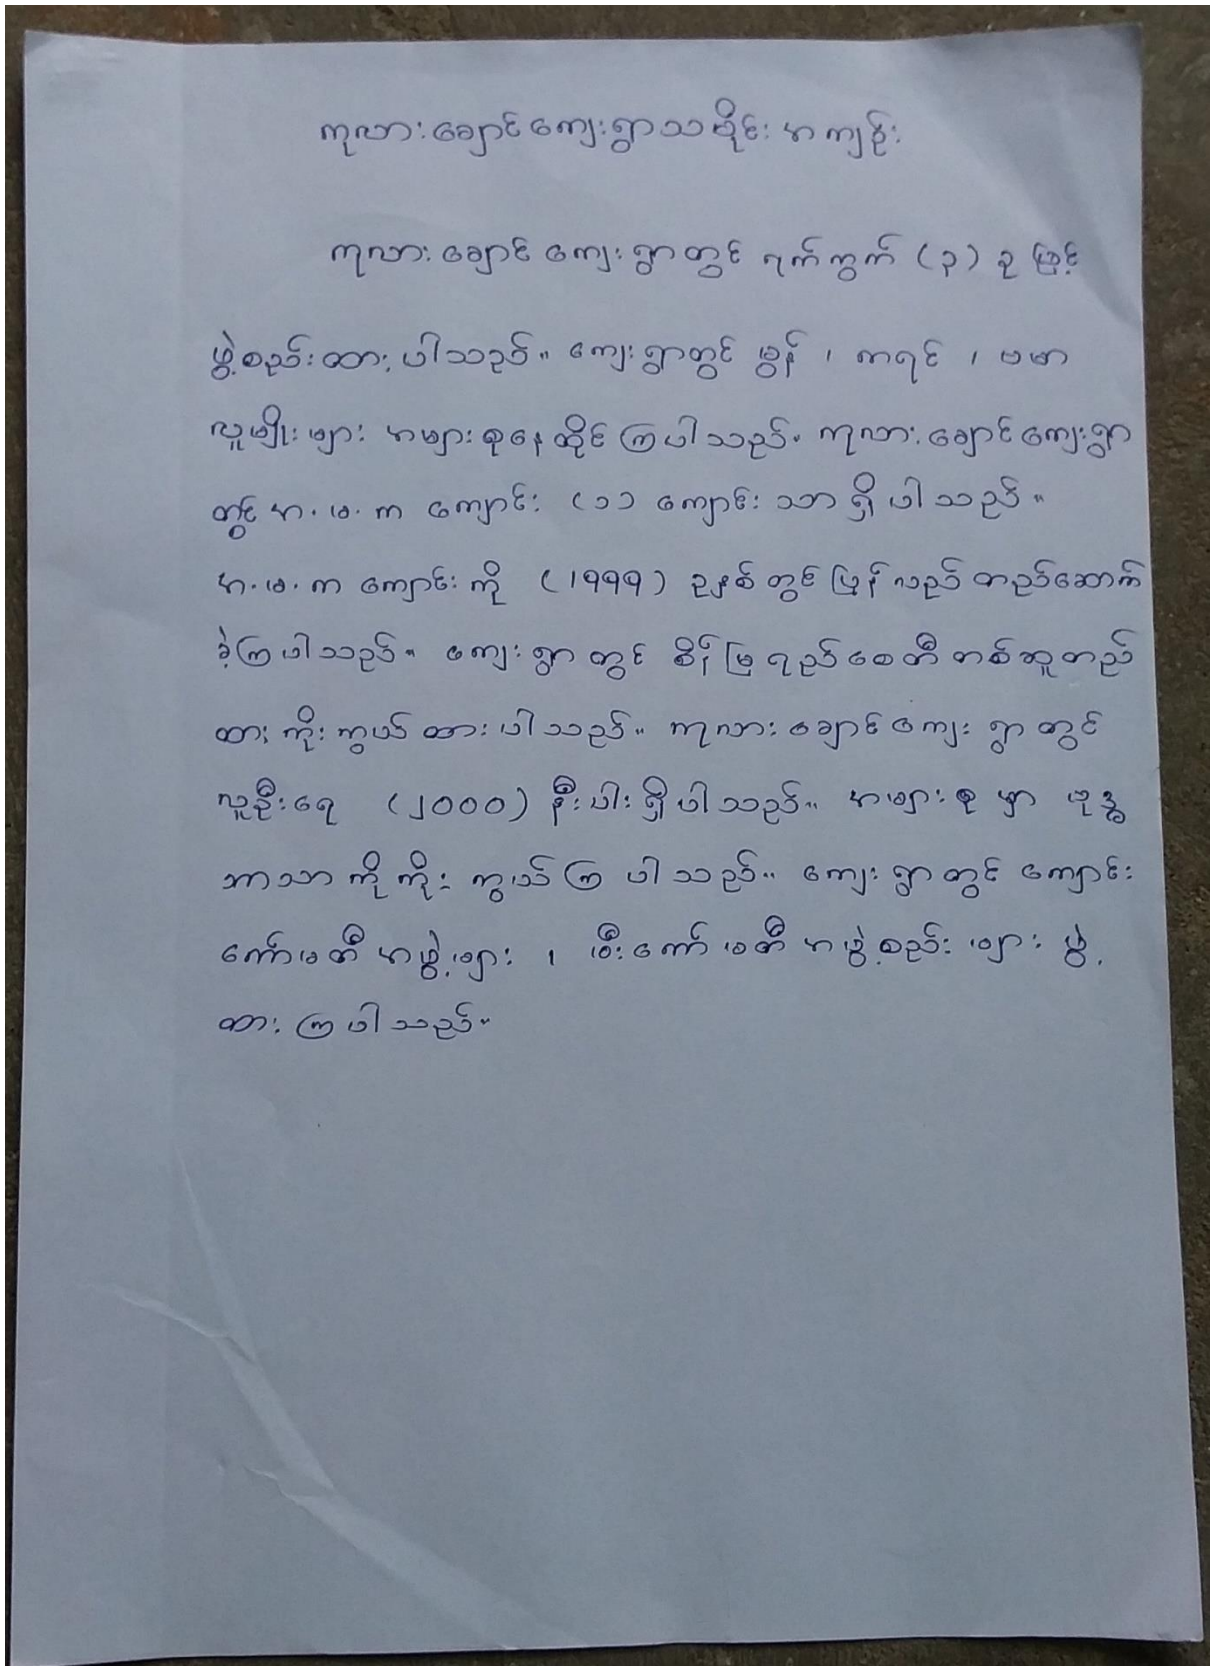 ကုလားချောင်ကျေးရွာသမိုင်းအကျဉ်း
ကုလားချောင်ကျေးရွာတွင် ရက်ကွက် (၃) ခု ဖြင့်
ဖွဲ့စည်းထားပါသည်။ ကျေးရွာတွင် မွန် ၊ ကရင် ၊ ဗမာ
လူမျိုးများ အများစုနေထိုင်ကြပါသည်။ ကုလားချောင်ကျေးရွာ
တွင် အ.မ.က ကျောင်း (၁) ကျောင်းသာ ရှိပါသည်။
အ.မ.က ကျောင်းကို (1999) ခုနှစ်တွင် ပြန်လည်တည်ဆောက်
ခဲ့ကြပါသည်။ ကျေးရွာတွင် စိန်မြရည်စေတီတစ်ဆူတည်
ထားကိုးကွယ်ထားပါသည်။ ကုလားချောင်ကျေးရွာတွင်
လူဦးရေ (၂၀၀၀) နီးပါးရှိပါသည်။ အများစုမှာ ဗုဒ္ဓ
ဘာသာကိုကိုးကွယ်ကြပါသည်။ ကျေးရွာတွင် ကျောင်း
ကော်မတီအဖွဲ့များ ၊ မီးကော်မတီအဖွဲ့စည်းများ ဖွဲ့
ထားကြပါသည်။